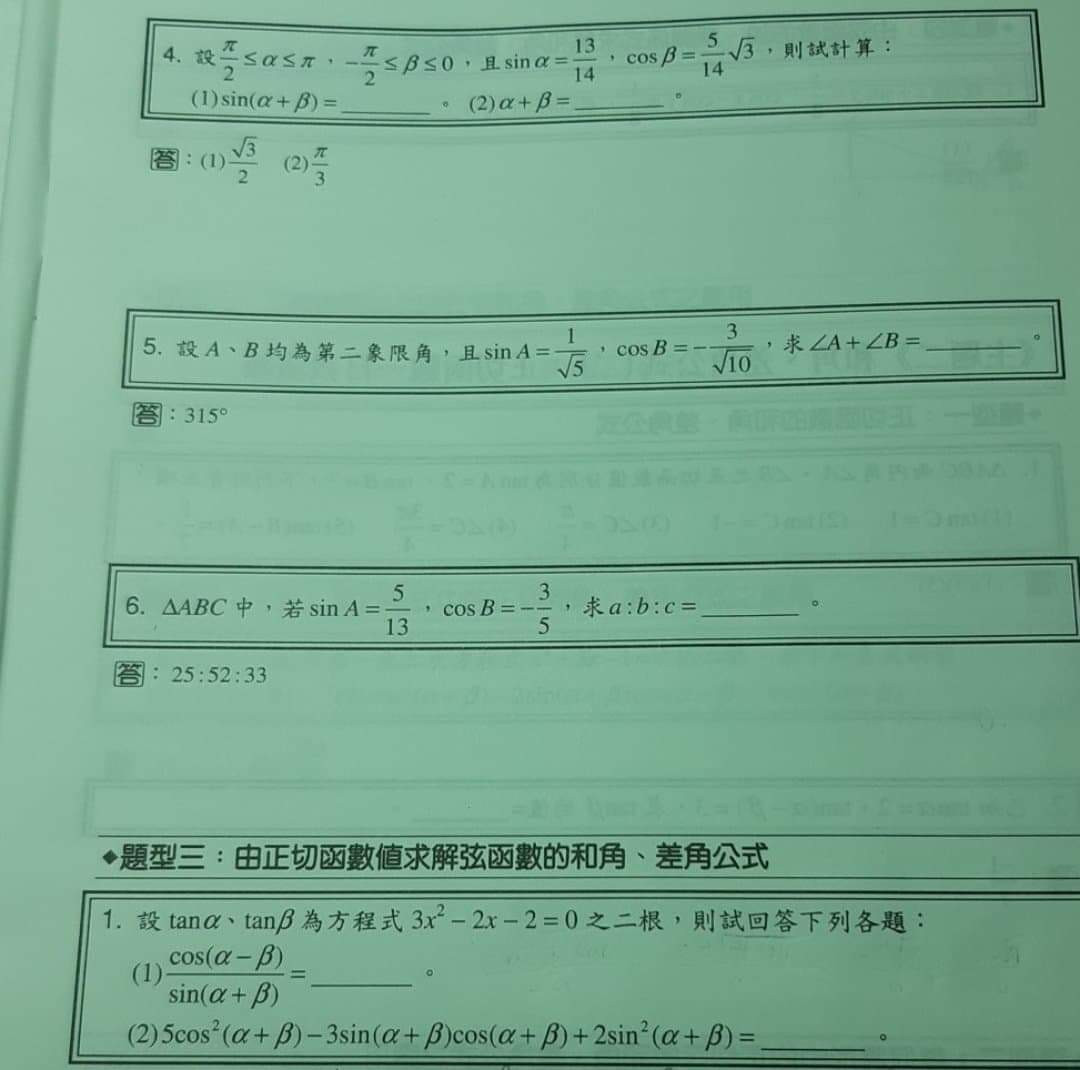 4. 設 π/2 ≤ α ≤ π，-π/2 ≤ β ≤ 0，且 sin α = 13/14，cos β = 5/14 √3，則試計算：
(1) sin(α + β) = ________。 (2) α + β = ________。
答：(1) √3/2 (2) π/3
5. 設 A、B 均為第二象限角，且 sin A = 1/√5，cos B = -3/√10，求 ∠A + ∠B = ________。
答：315°
6. ΔABC 中，若 sin A = 5/13，cos B = -3/5，求 a : b : c = ________。
答：25 : 52 : 33
◆題型三：由正切函數值求解弦函數的和角、差角公式
1. 設 tan α、tan β 為方程式 3x² - 2x - 2 = 0 之二根，則試回答下列各題：
(1) cos(α - β)/sin(α + β) = ________。
(2) 5cos²(α + β) - 3sin(α + β)cos(α + β) + 2sin²(α + β) = ________。